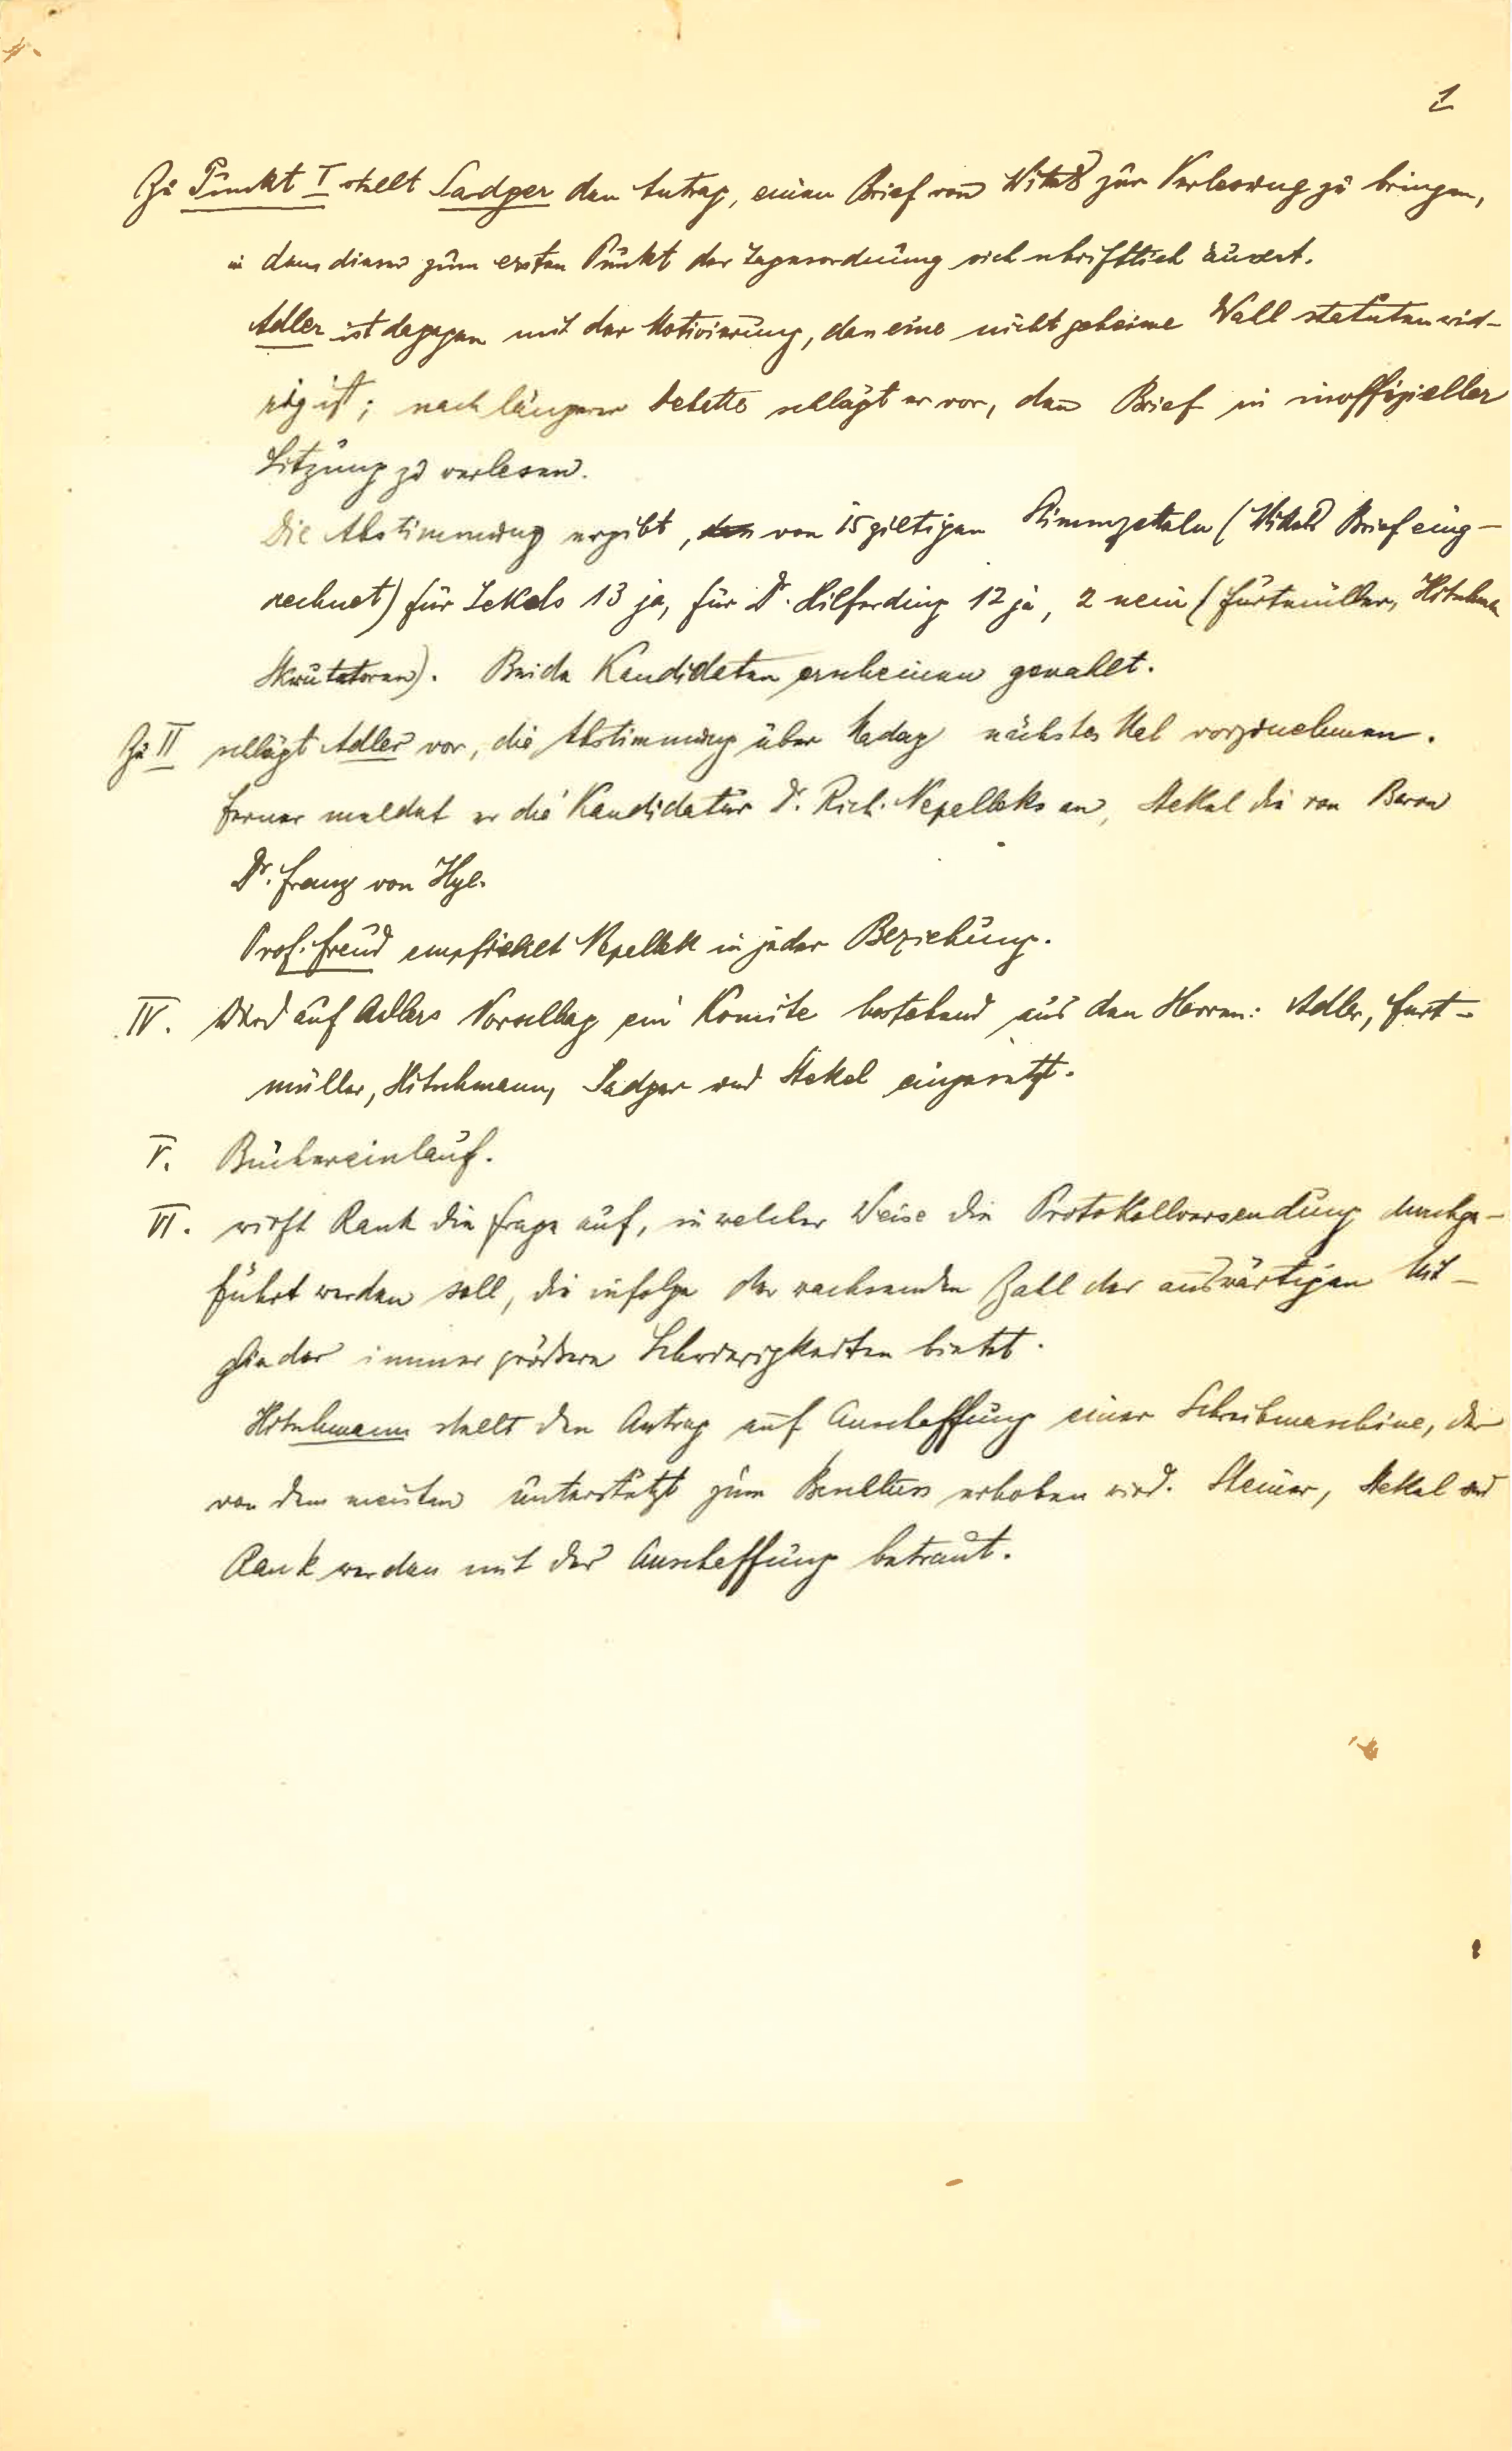 1
Zu Punkt I stellt Sadger den Antrag, einen Brief von Wittels zur Verlesung zu bringen,
in dem dieser zum ersten Punkt der Tagesordnung sich schriftlich äussert.
Adler ist dagegen mit der Motivierung, dass eine nicht geheime Wahl statutenwid-
rig ist; nach längerer Debatte schlägt er vor, den Brief in inoffizieller
Sitzung zu verlesen.
Die Abstimmung ergibt, von 15 giltigen Stimmzetteln (Brief einge-
rechnet) für Jekels 13 ja, für Dr. Hilferding 12 ja, 2 nein (Furtmüller, Hitschmann
Skrutatoren). Beide Kandidaten erscheinen gewählt.
Zu II schlägt Adler vor, die Abstimmung über Maday nächstes Mal vorzunehmen.
Ferner meldet er die Kandidatur Dr. Rich. Nepalleks an, Stekel die von Baron
Dr. Franz von Hye.
Prof. Freud empfiehlt Nepallek in jeder Beziehung.
IV. Wird auf Adlers Vorschlag ein Komite bestehend aus den Herren: Adler, Furt-
müller, Hitschmann, Sadger und Stekel eingesetzt.
V. Büchereinlauf.
VI. wirft Rank die Frage auf, in welcher Weise die Protokollversendung durchge-
führt werden soll, die infolge der wachsenden Zahl der auswärtigen Mit-
glieder immer grössere Schwierigkeiten bietet.
Hitschmann stellt den Antrag auf Anschaffung einer Schreibmaschine, der
von den meisten unterstützt zum Beschluss erhoben wird. Steiner, Stekel und
Rank werden mit der Anschaffung betraut.